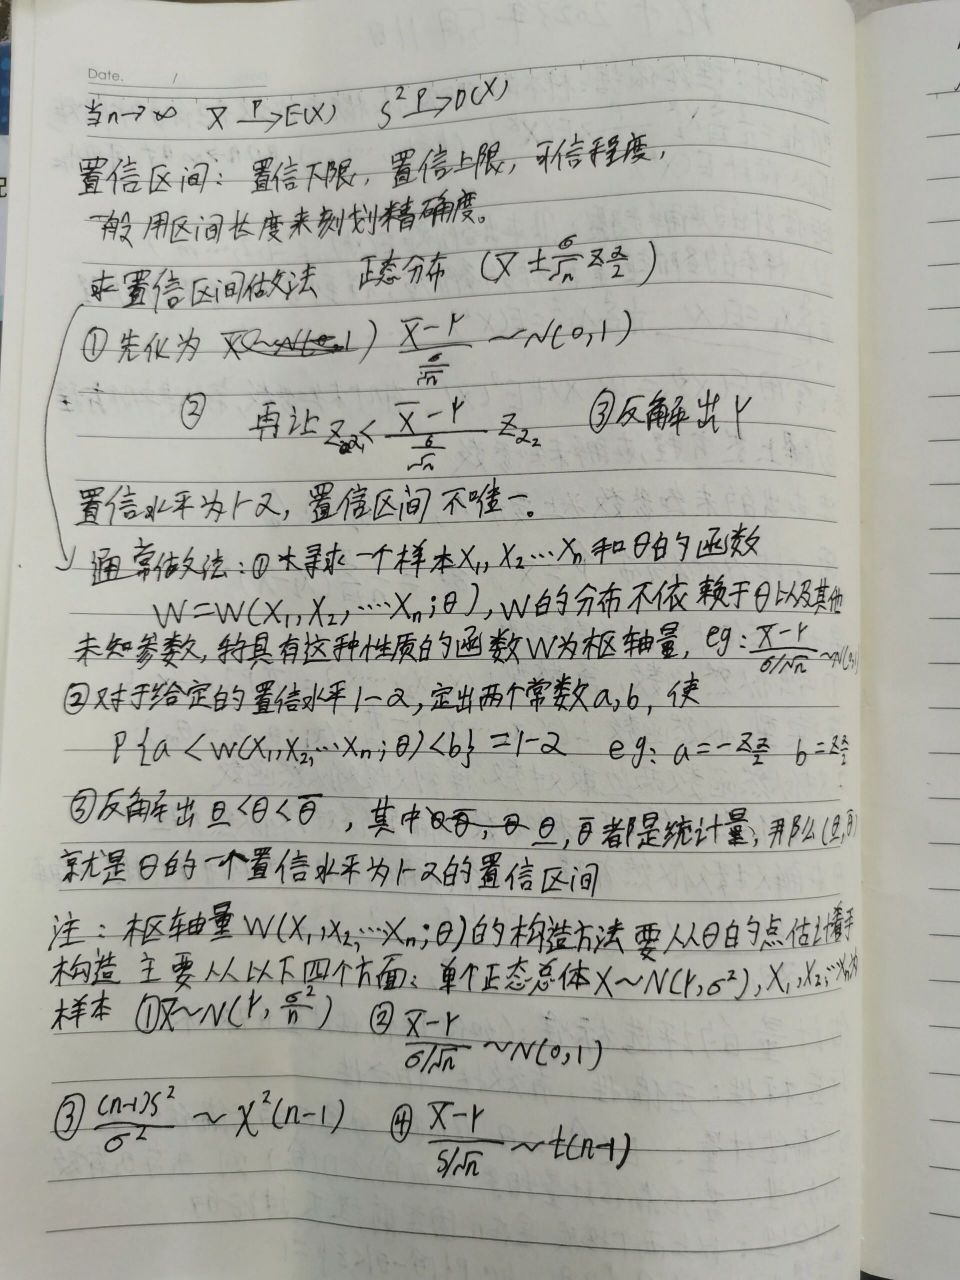 Date. /
当n→∞ X̄ P→E(X) S² P→D(X)
置信区间：置信下限，置信上限，可信程度，
一般用区间长度来刻划精确度。
求置信区间做法 正态分布 (X̄ ± σ/√n z α/2)
①先化为 (X̄-μ)/(σ/√n) ~N(0,1)
② 再让 Zα₁< (X̄-μ)/(σ/√n) Zα₂ ③反解出μ
置信水平为1-α，置信区间不唯一。
通常做法：①寻求一个样本X₁, X₂…Xn和θ的函数
W=W(X₁,X₂,…Xn;θ)，W的分布不依赖于θ以及其他
未知参数，称具有这种性质的函数W为枢轴量，eg: (X̄-μ)/(σ/√n) ~N(0,1)
②对于给定的置信水平1-α，定出两个常数a,b，使
P{a<W(X₁,X₂,…Xn;θ)<b}=1-α eg: a=-z α/2 b=z α/2
③反解出 θ̲<θ<θ̄，其中θ̲,θ̄都是统计量，那么(θ̲,θ̄)
就是θ的一个置信水平为1-α的置信区间
注：枢轴量W(X₁,X₂,…Xn;θ)的构造方法 要从θ的点估计着手
构造 主要从以下四个方面：单个正态总体X~N(μ,σ²),X₁,X₂…Xn为
样本 ①X̄~N(μ, σ²/n) ② (X̄-μ)/(σ/√n) ~N(0,1)
③ (n-1)S²/σ² ~ χ²(n-1) ④ (X̄-μ)/(S/√n) ~t(n-1)